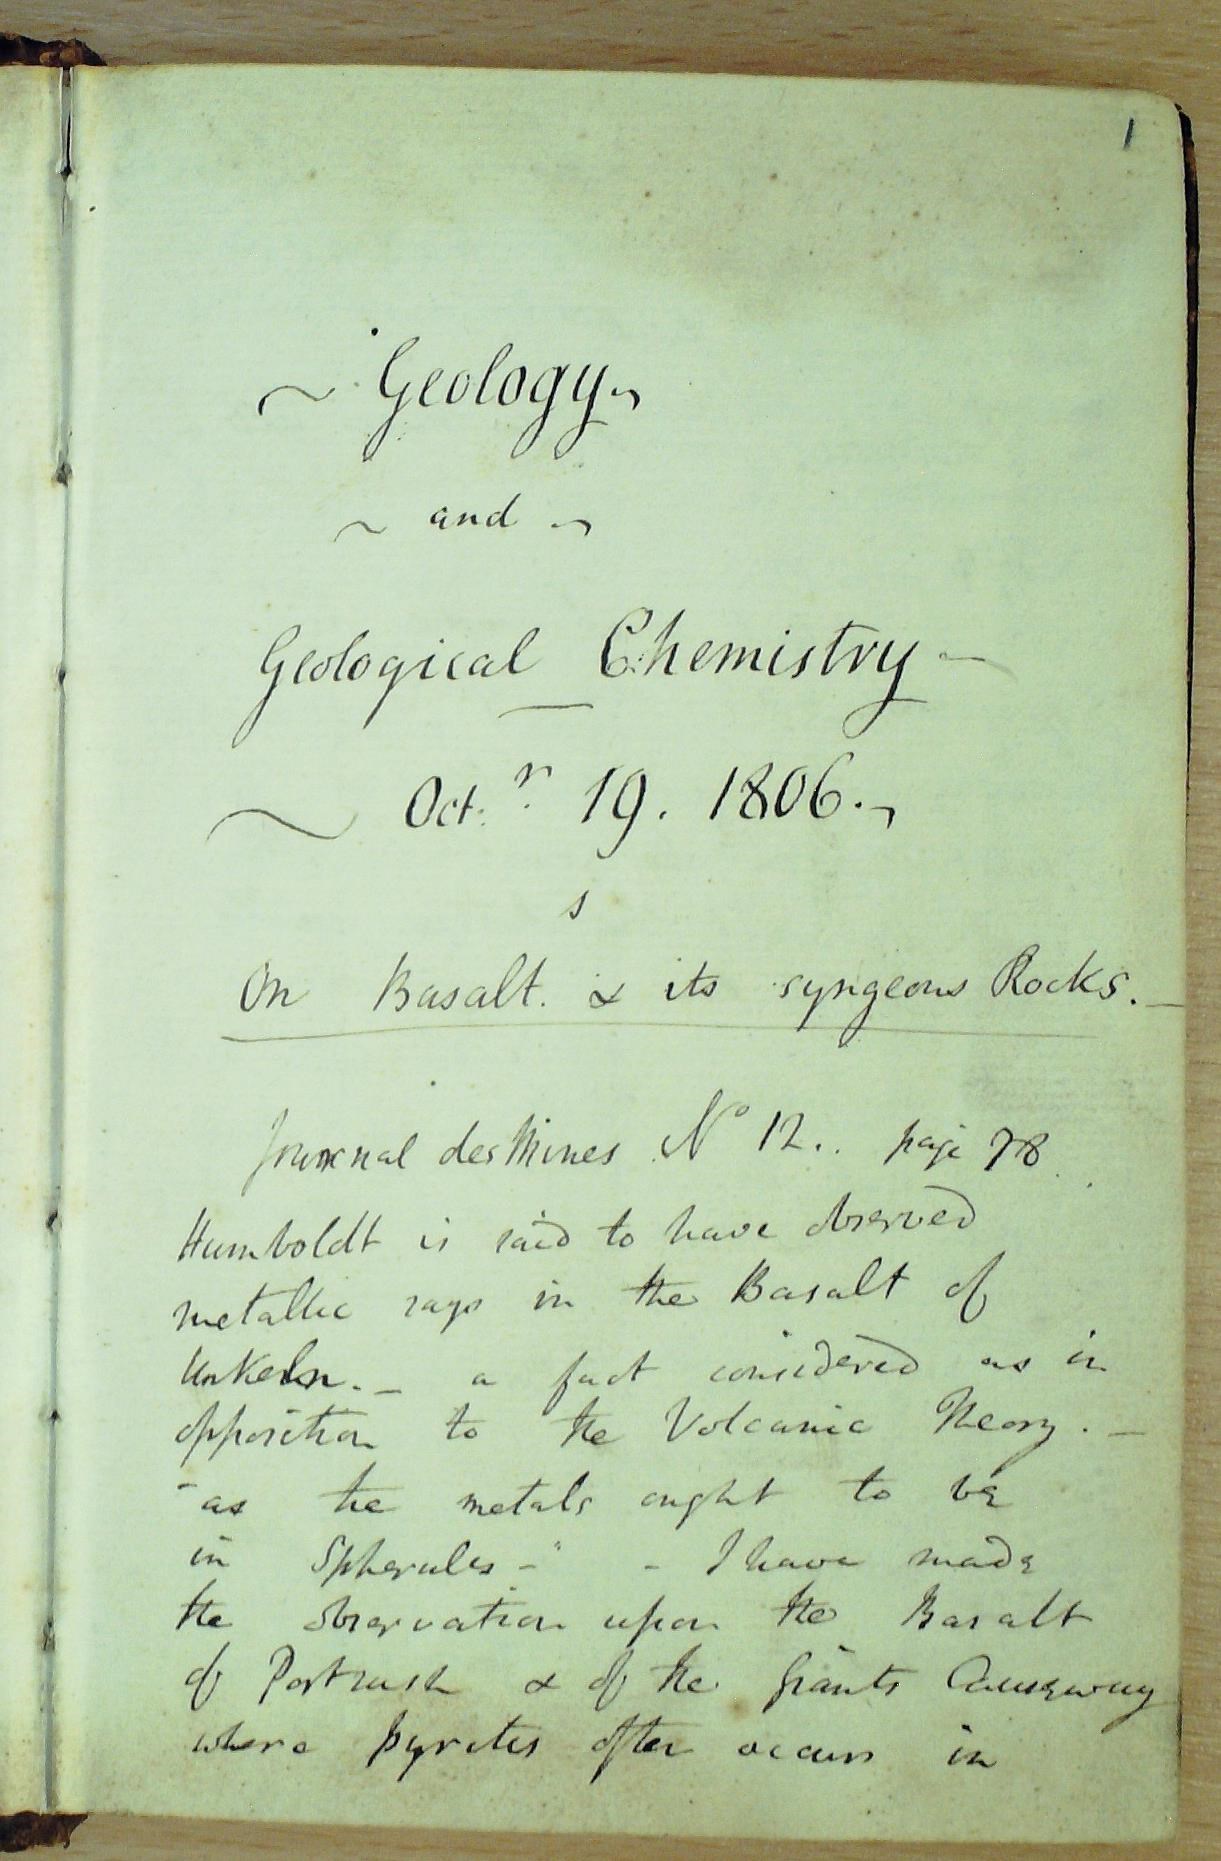 1
~ Geology ~
~ and ~
Geological Chemistry -
~ Oct.r 19. 1806. ~
On Basalt. & its syngeous Rocks. -
Journal des Mines No 12.. page 78
Humboldt is said to have observed
metallic rays in the Basalt of
Unkeln. - a fact considered as in
opposition to the Volcanic Theory. -
"as the metals ought to be
in Spherules -" - I have made
the observation upon the Basalt
of Portrush & of the Giants Causeway
where pyrites often occurs in